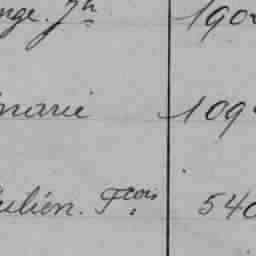 nge. Jh 190
marie 109
ulien. Fcois 540